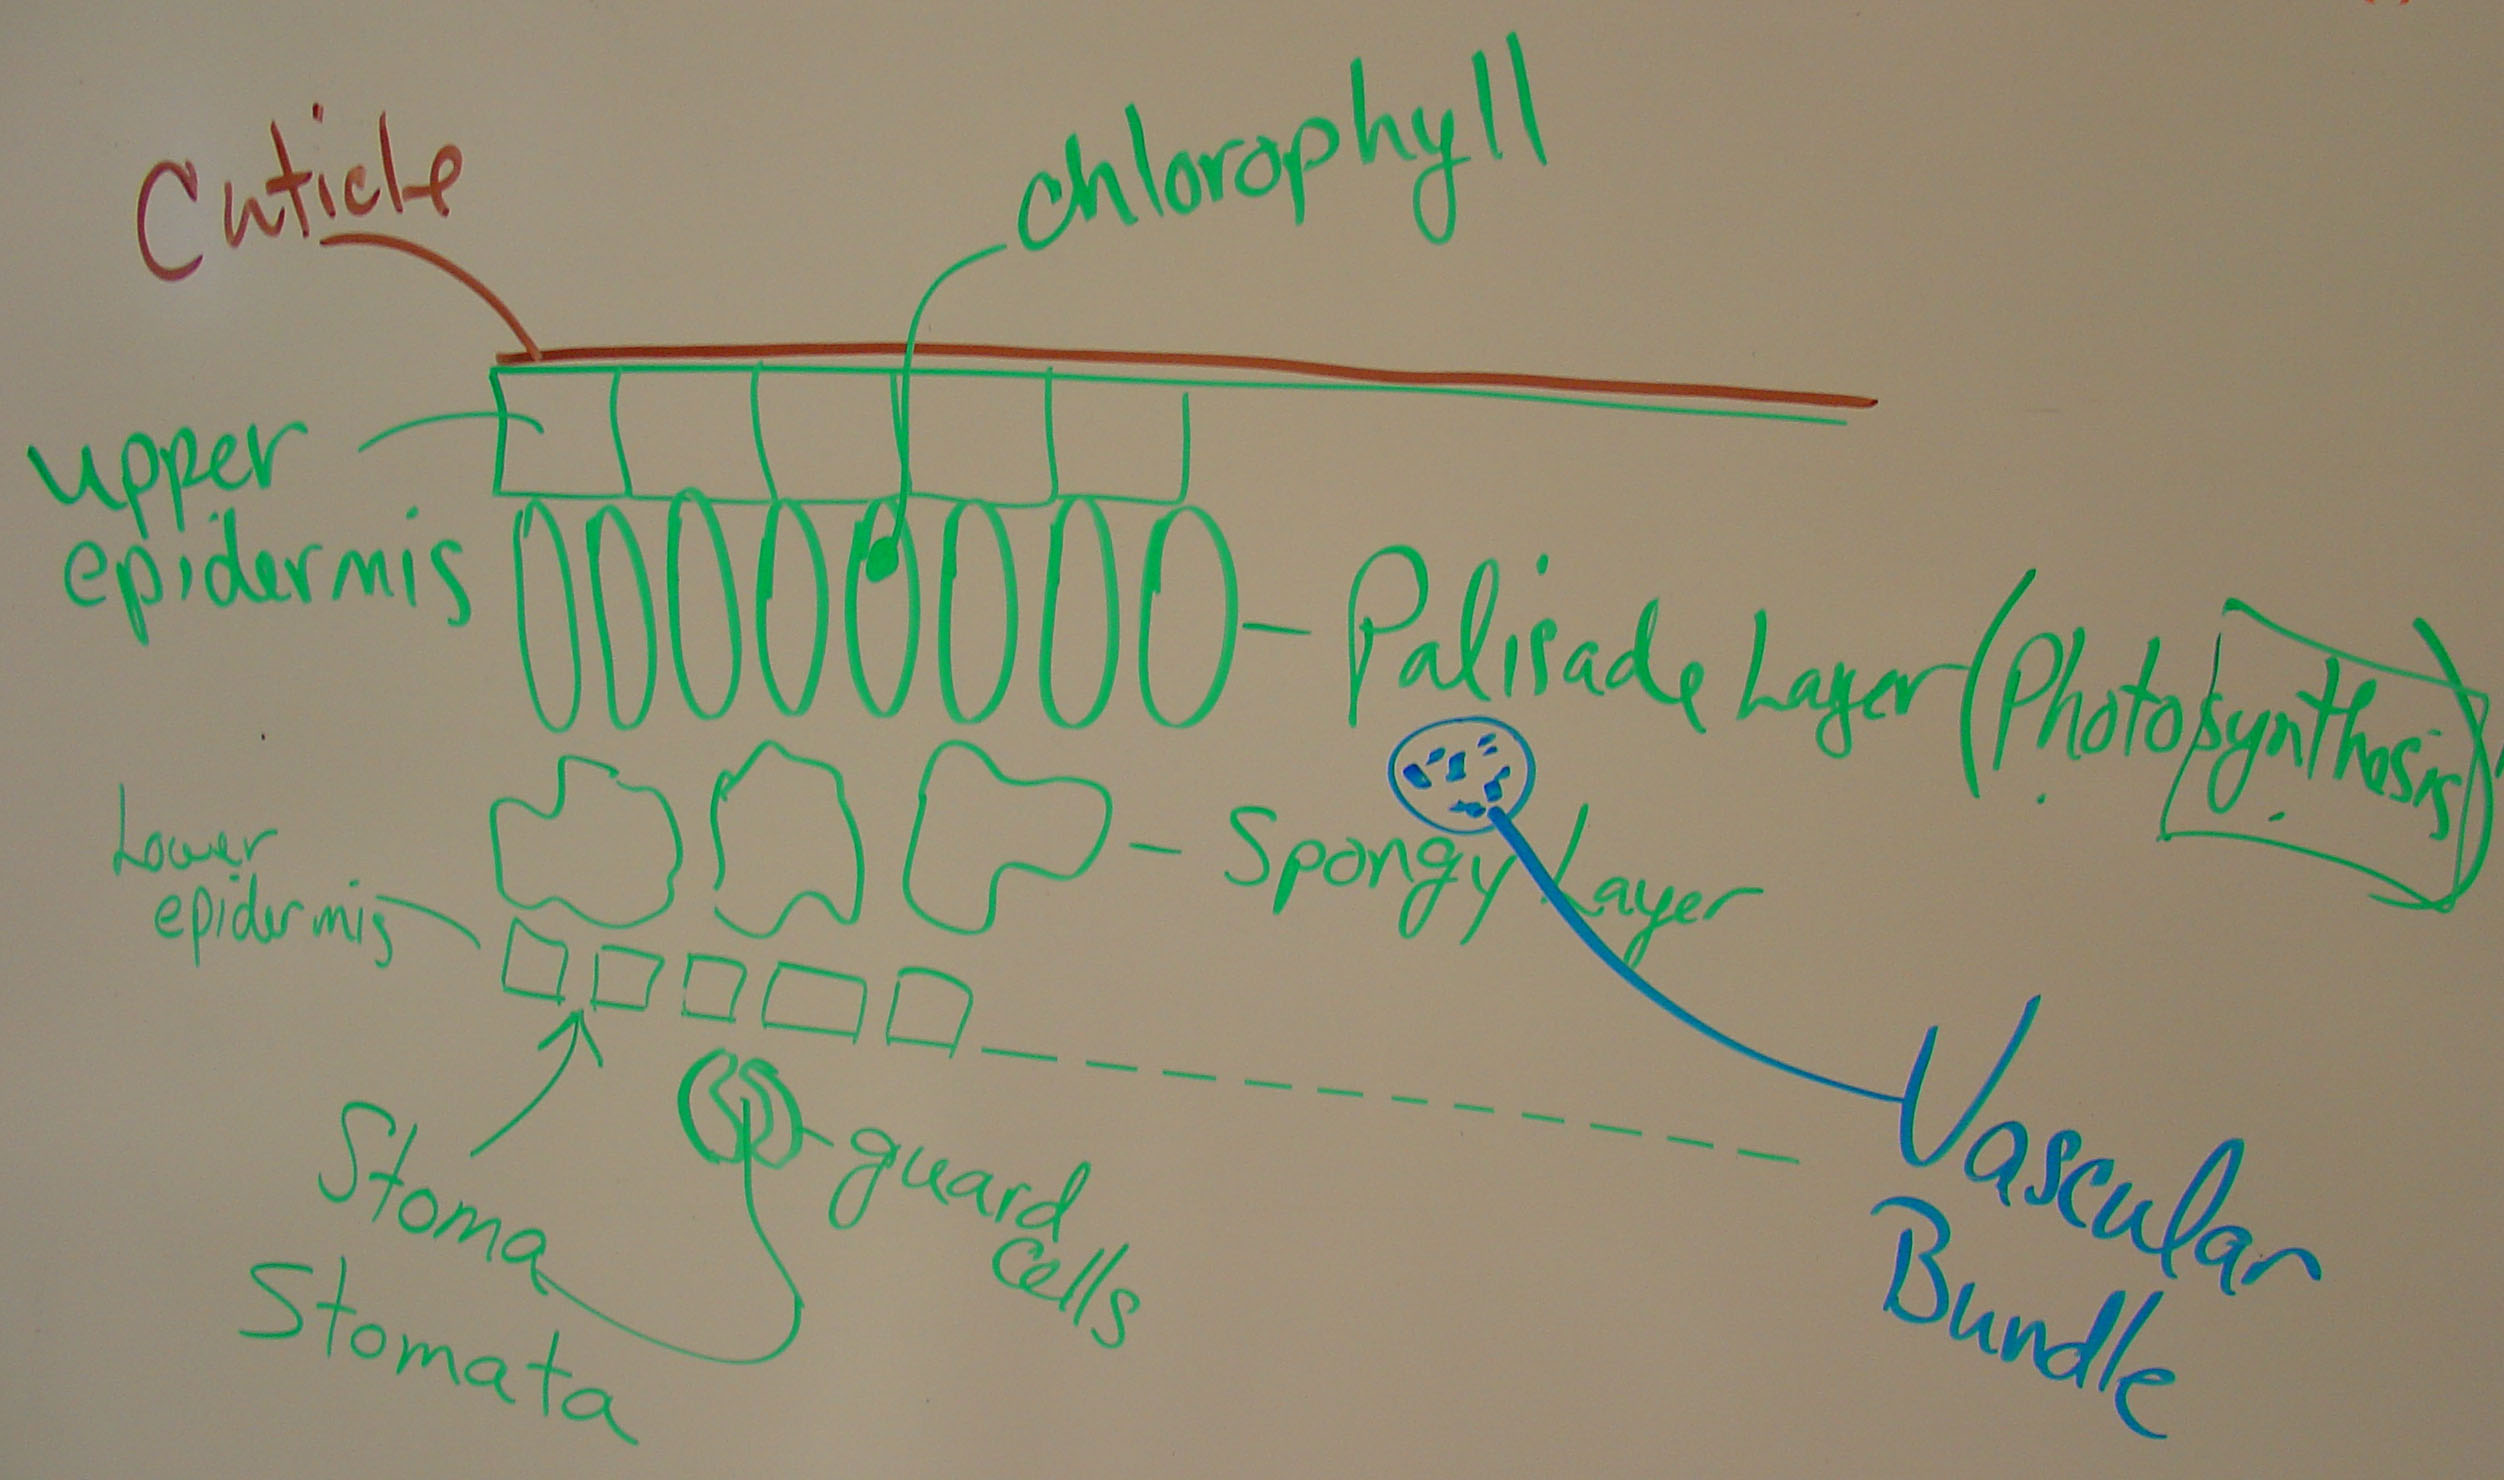 Cuticle
chlorophyll
upper
epidermis
Palisade Layer (Photosynthesis)
Lower
epidermis
Spongy Layer
Stoma
Stomata
guard
cells
Vascular
Bundle